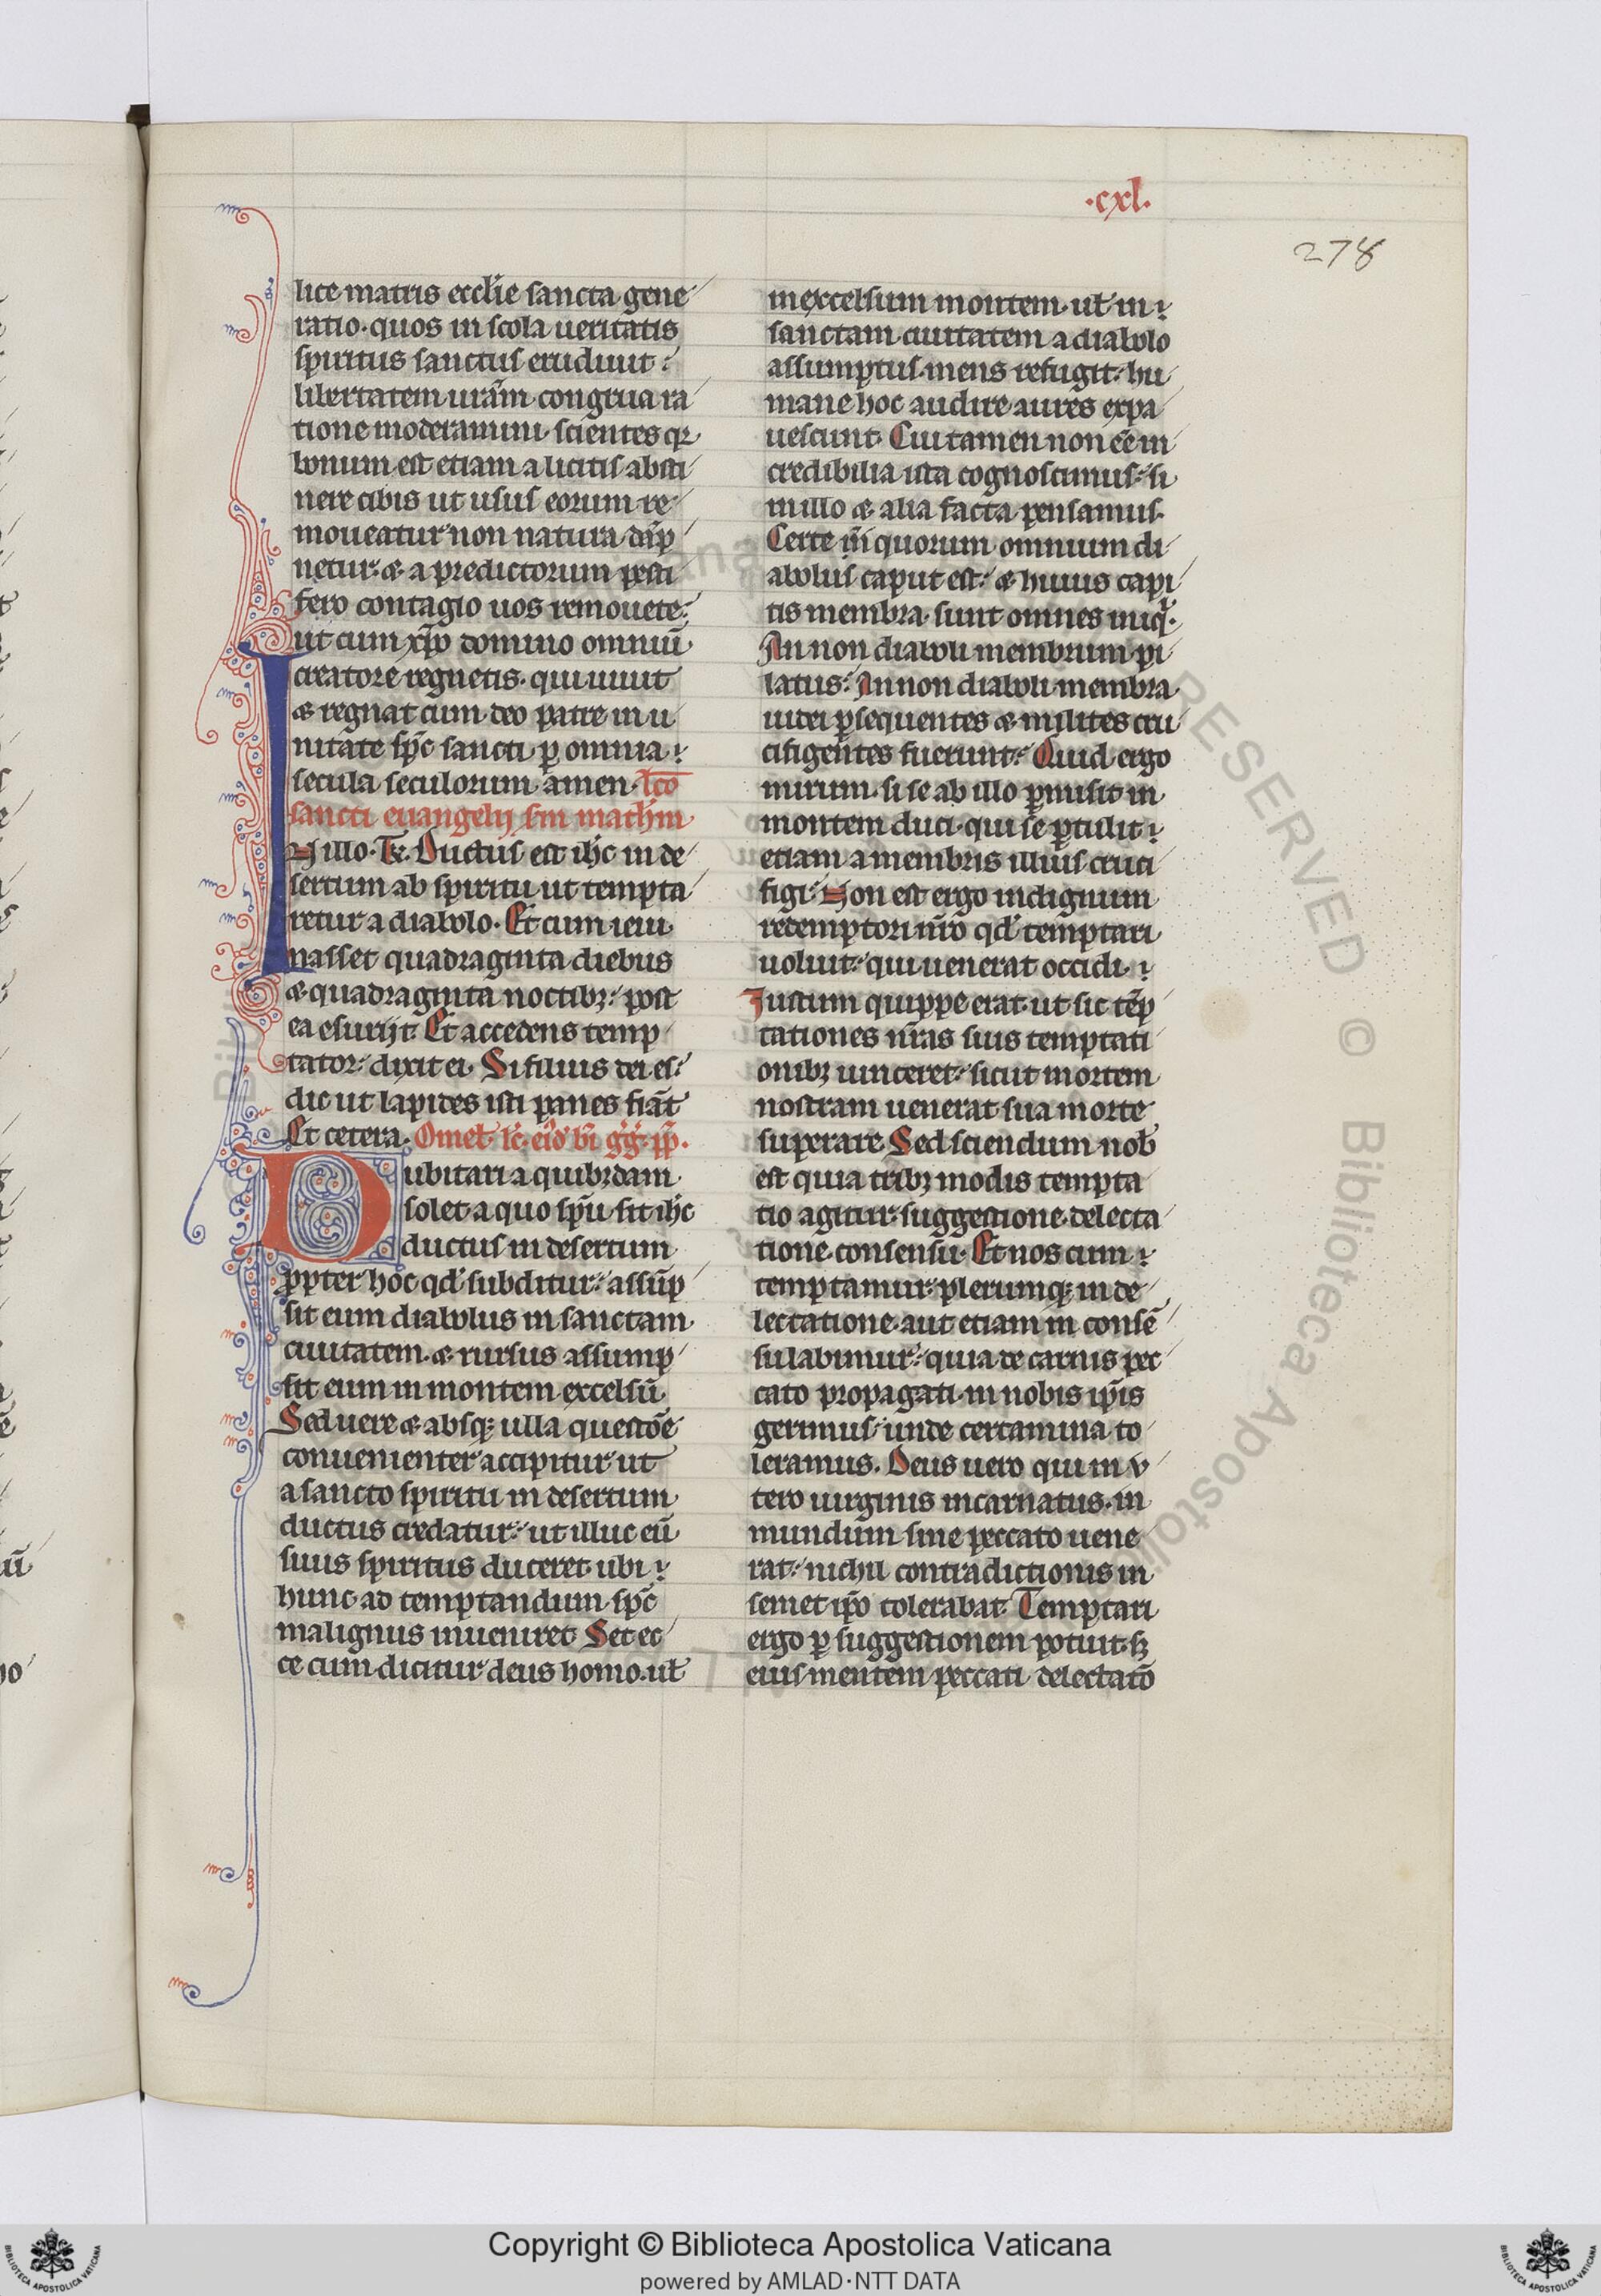 ·cxl·
278
lice matris ecclie sancta gene
ratio· quos in scola ueritatis
spiritus sanctus erudiuit:
libertatem uram congrua ra
tione moderamini· scientes qr
bonum est etiam a licitis absti
nere cibis ut usus eorum re
moueatur non natura damp
netur· et a predictorum pesti
fero contagio uos remouete:
ut cum xpo domino omniū
creatore regnetis· qui uiuit
et regnat cum deo patre in u
nitate spc sancti p omnia
secula seculorum amen· lco
sancti euangelij sm mathm
In illo· Te· Ductus est ihc in de
sertum ab spiritu ut tempta
retur a diabolo· Et cum ieiu
nasset quadraginta diebus
et quadraginta noctibꝫ: post
ea esurijt· Et accedens temp
tator: dixit ei· Si filius dei es:
dic ut lapides isti panes fiāt
Et cetera· Omel· lc· eiꝰd bi gg pp·
Dubitari a quibꝫdam
solet a quo spu sit ihc
ductus in desertum
ppter hoc qd subditur: assūp
sit eum diabolus in sanctam
ciuitatem· et rursus assump
sit eum in montem excelsū
Sed uere et absqꝫ ulla questōe
conuenienter accipitur ut
a sancto spiritu in desertum
ductus credatur: ut illuc eū
suus spiritus duceret ubi
hunc ad temptandum spc
malignus inueniret Set ec
ce cum dicitur deus homo· ul
in excelsum montem· ul in
sanctam ciuitatem a diabolo
assumptus· mens refugit· hu
mane hoc audire aures expa
uescunt· Cui tamen non eē in
credibilia ista cognoscimus: si
in illo et alia facta pensamus·
Certe iii quorum omnium di
abolus caput est: et huius capi
tis membra· sunt omnes iniqi·
An non diaboli membrum pi
latus: An non diaboli membra
iudei psequentes et milites cru
cifigentes fuerunt: Quid ergo
mirum· si se ab illo pmisit in
montem duci· qui se ptulit
etiam a membris illius cruci
figi· Non est ergo indignum
redemptori nro qd temptari
uoluit: qui uenerat occidi·
Iustum quippe erat ut sic tēp
tationes nras suis temptati
onibꝫ uinceret: sicut mortem
nostram uenerat sua morte
superare Sed sciendum nob
est quia tribꝫ modis tempta
tio agitur: suggestione· delecta
tione· consensu· Et nos cum
temptamur: plerumqꝫ in de
lectatione· aut etiam in consē
su labimur: quia de carnis pec
cato propagati· in nobis ipis
gerimus: unde certamina to
leramus· Deus uero qui in v
tero uirginis incarnatus· in
mundum sine peccato uene
rat: nichil contradictionis in
semet ipo tolerabat· Temptari
ergo p suggestionem potuit· sꝫ
eius mentem peccati delectatō
Copyright © Biblioteca Apostolica Vaticana
powered by AMLAD·NTT DATA